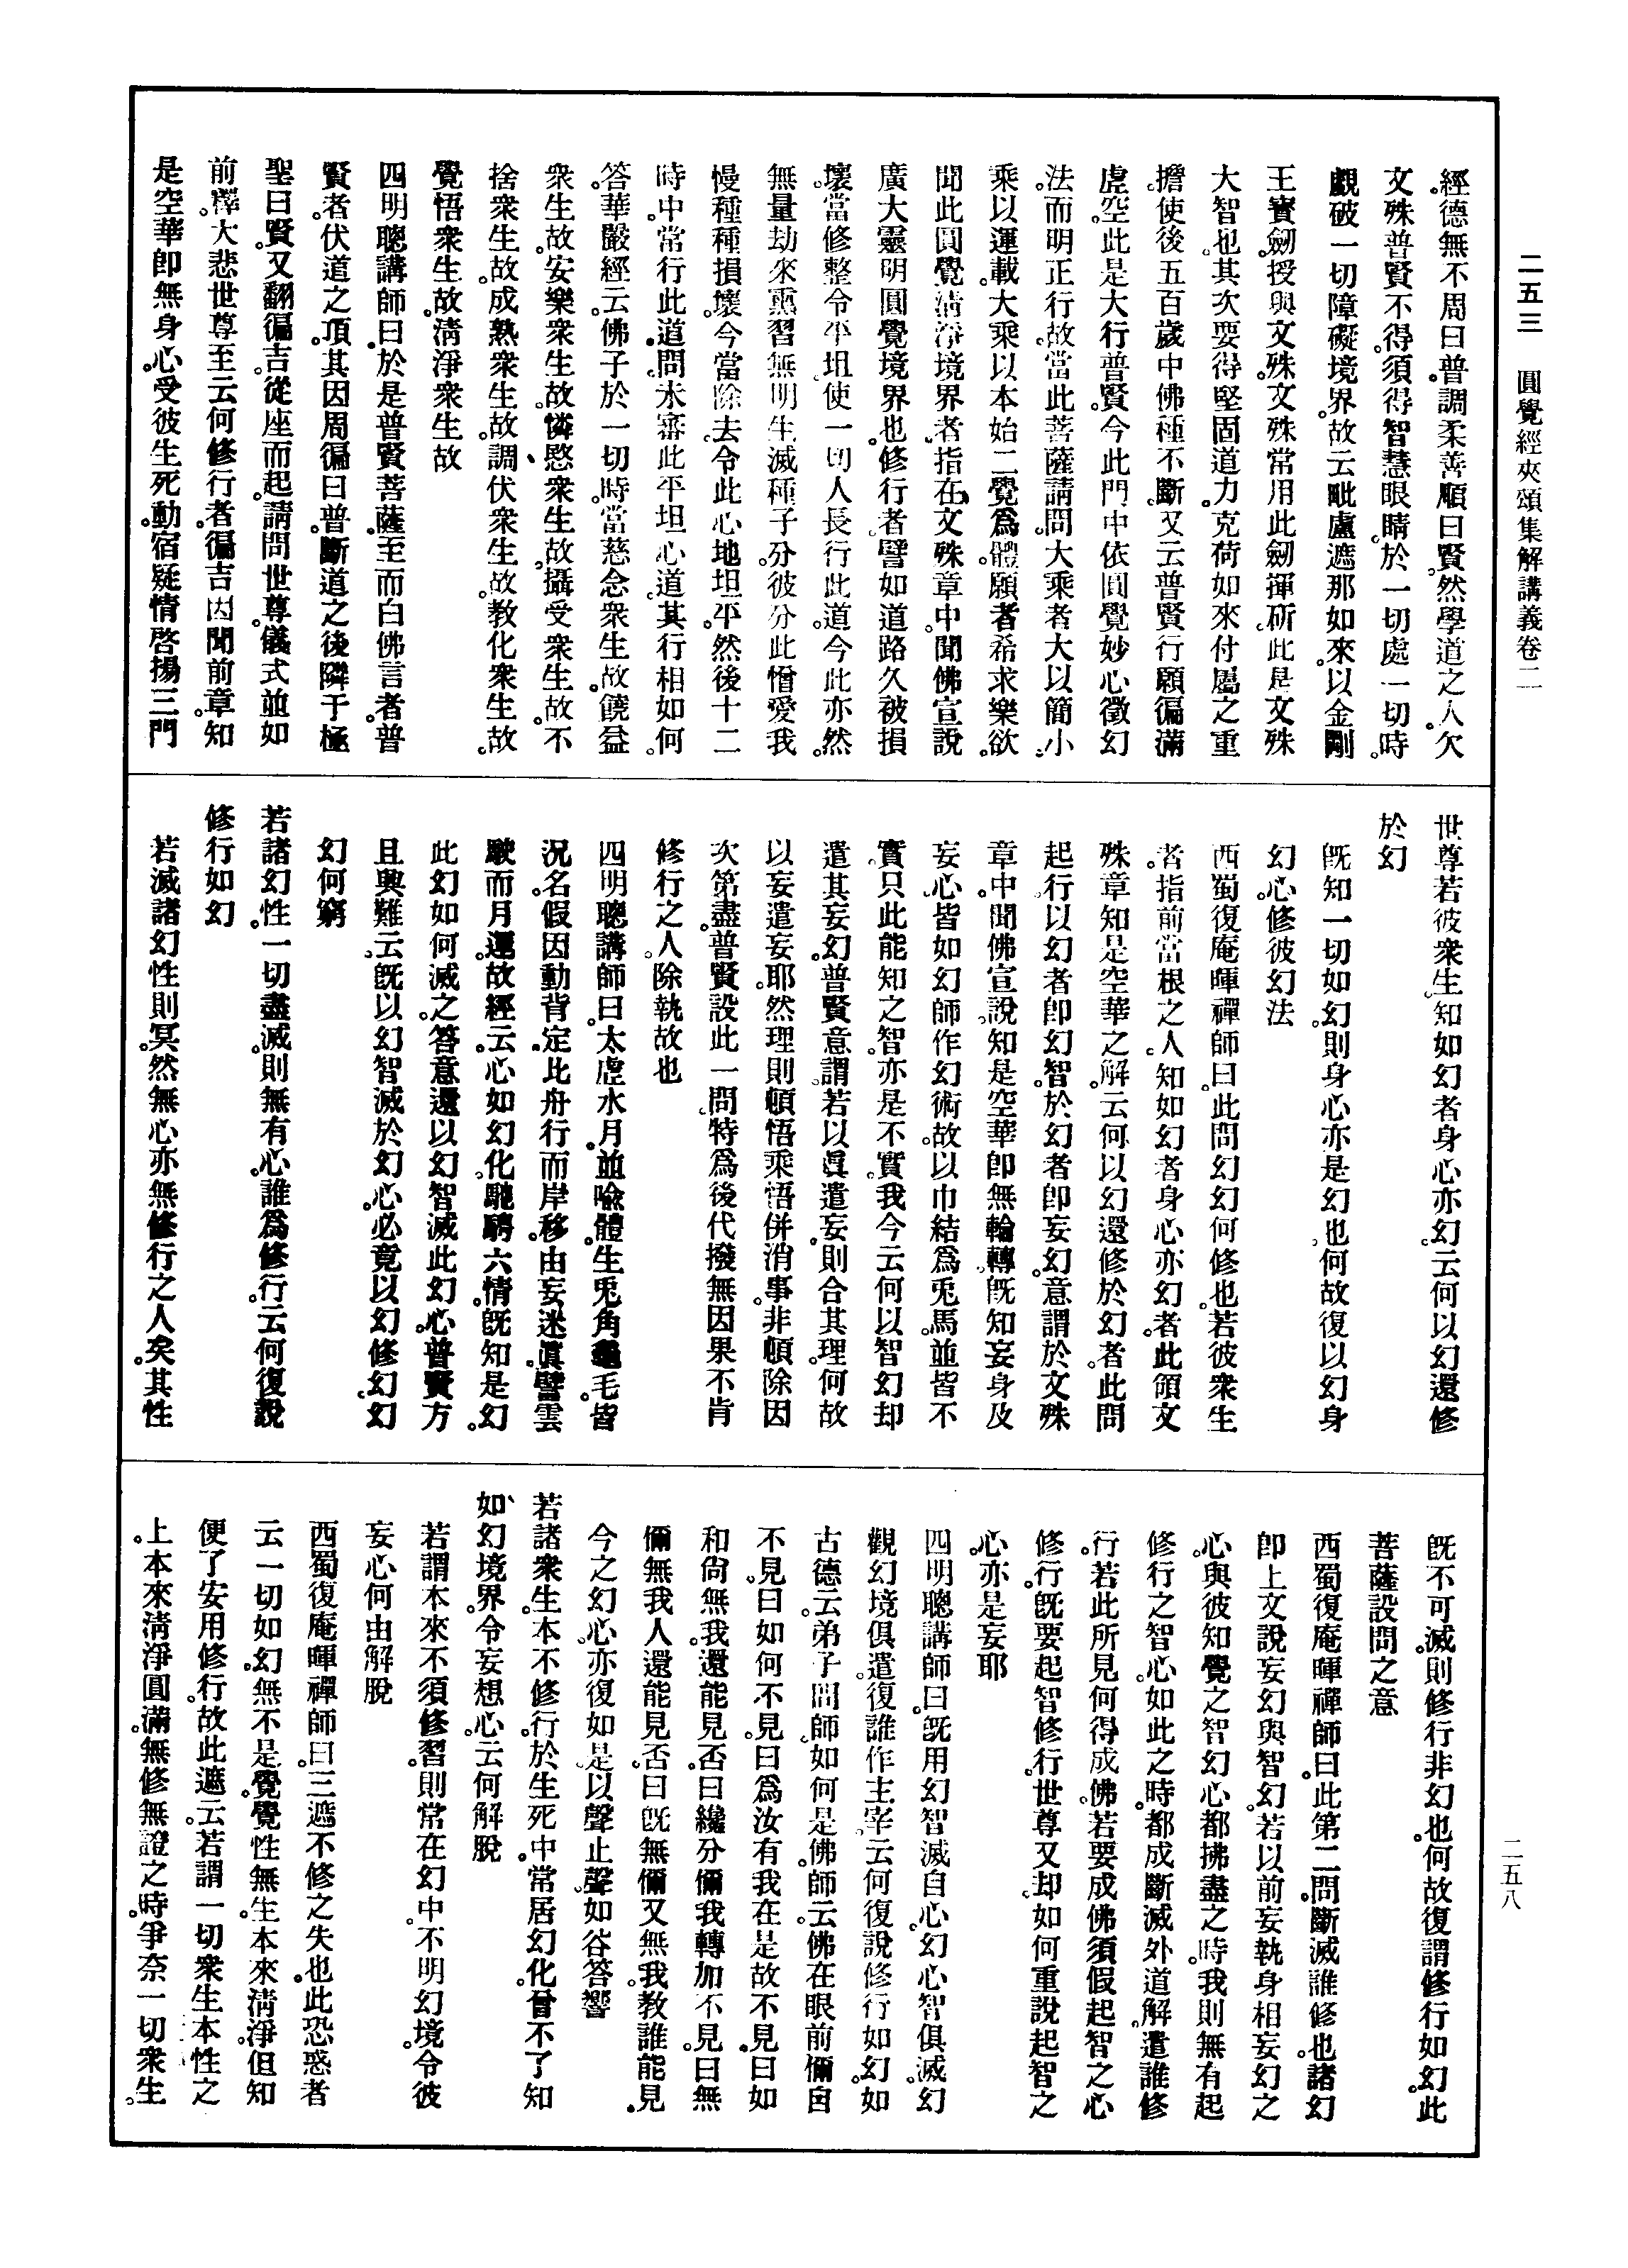 二五三　圓覺經夾頌集解講義卷二
二五八
經德無不周曰普調柔善順曰賢然學道之人欠
文殊普賢不得須得智慧眼睛於一切處一切時
覷破一切障礙境界故云毗盧遮那如來以金剛
王寶劒授與文殊文殊常用此劒揮斫此是文殊
大智也其次要得堅固道力克荷如來付屬之重
擔使後五百歲中佛種不斷又云普賢行願徧滿
虛空此是大行普賢今此門中依圓覺妙心徵幻
法而明正行故當此菩薩請問大乘者大以簡小
乘以運載大乘以本始二覺爲體願者希求樂欲
聞此圓覺清淨境界者指在文殊章中聞佛宣說
廣大靈明圓覺境界也修行者譬如道路久被損
壞當修整令平坦使一切人長行此道今此亦然
無量劫來熏習無明生滅種子分彼分此憎愛我
慢種種損壞今當除去令此心地坦平然後十二
時中常行此道問未審此平坦心道其行相如何
答華嚴經云佛子於一切時當慈念衆生故饒益
衆生故安樂衆生故憐愍衆生故攝受衆生故不
捨衆生故成熟衆生故調伏衆生故教化衆生故
覺悟衆生故清淨衆生故
四明聰講師曰於是普賢菩薩至而白佛言者普
賢者伏道之頂其因周徧曰普斷道之後隣于極
聖曰賢又翻徧吉從座而起請問世尊儀式並如
前釋大悲世尊至云何修行者徧吉因聞前章知
是空華卽無身心受彼生死動宿疑情啓揚三門
世尊若彼衆生知如幻者身心亦幻云何以幻還修
於幻
旣知一切如幻則身心亦是幻也何故復以幻身
幻心修彼幻法
西蜀復庵暉禪師曰此問幻幻何修也若彼衆生
者指前當根之人知如幻者身心亦幻者此領文
殊章知是空華之解云何以幻還修於幻者此問
起行以幻者卽幻智於幻者卽妄幻意謂於文殊
章中聞佛宣說知是空華卽無輪轉旣知妄身及
妄心皆如幻師作幻術故以巾結爲兎馬並皆不
實只此能知之智亦是不實我今云何以智幻却
遣其妄幻普賢意謂若以眞遣妄則合其理何故
以妄遣妄耶然理則頓悟乘悟併消事非頓除因
次第盡普賢設此一問特爲後代撥無因果不肯
修行之人除執故也
四明聰講師曰太虛水月並喻體生兎角龜毛皆
况名假因動背定比舟行而岸移由妄迷眞譬雲
駛而月運故經云心如幻化馳騁六情旣知是幻
此幻如何滅之答意還以幻智滅此幻心普賢方
且興難云旣以幻智滅於幻心必竟以幻修幻幻
幻何窮
若諸幻性一切盡滅則無有心誰爲修行云何復說
修行如幻
若滅諸幻性則冥然無心亦無修行之人矣其性
旣不可滅則修行非幻也何故復謂修行如幻此
菩薩設問之意
西蜀復庵暉禪師曰此第二問斷滅誰修也諸幻
卽上文說妄幻與智幻若以前妄執身相妄幻之
心與彼知覺之智幻心都拂盡之時我則無有起
修行之智心如此之時都成斷滅外道解遣誰修
行若此所見何得成佛若要成佛須假起智之心
修行旣要起智修行世尊又却如何重說起智之
心亦是妄耶
四明聰講師曰旣用幻智滅自心幻心智俱滅幻
觀幻境俱遣復誰作主宰云何復說修行如幻如
古德云弟子問師如何是佛師云佛在眼前儞自
不見曰如何不見曰爲汝有我在是故不見曰如
和尙無我還能見否曰纔分儞我轉加不見曰無
儞無我人還能見否曰旣無儞又無我教誰能見
今之幻心亦復如是以聲止聲如谷答響
若諸衆生本不修行於生死中常居幻化曾不了知
如幻境界令妄想心云何解脫
若謂本來不須修習則常在幻中不明幻境令彼
妄心何由解脫
西蜀復庵暉禪師曰三遮不修之失也此恐惑者
云一切如幻無不是覺覺性無生本來清淨但知
便了安用修行故此遮云若謂一切衆生本性之
上本來清淨圓滿無修無證之時爭奈一切衆生